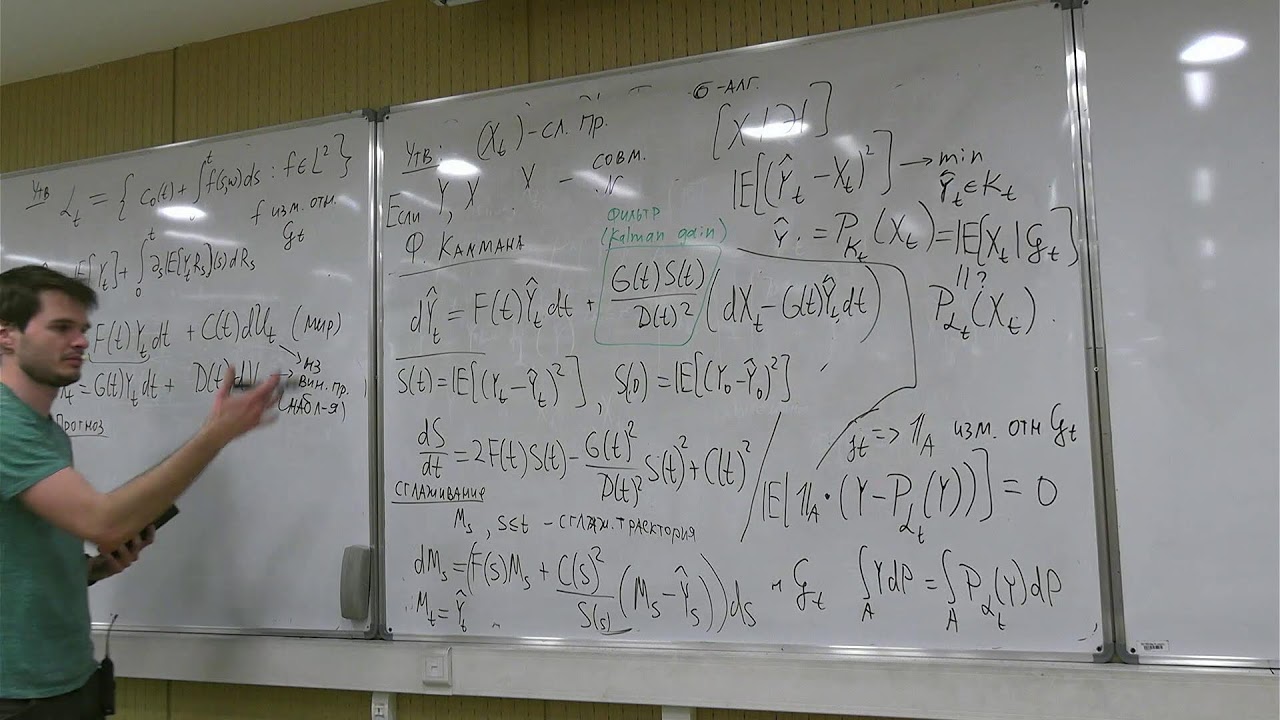 Утв 𝓛_t = { c₀(t) + ∫₀ᵗ f(s,ω)ds : f ∈ L² }
f изм. отн.
𝒢_t
E[Y_t] + ∫₀ᵗ ∂_s E[Y_t R_s](s) dR_s
F(t)Y_t dt + C(t)dU_t (мир)
= G(t)Y_t dt + D(t)d
из
вин. пр.
(набл-я)
Прогноз
Утв: (X_t) – сл. пр.
Если Y, X X – совм. N
Ф. Калмана
фильтр
(Kalman gain)
dŶ_t = F(t)Ŷ_t dt + G(t)S(t)/D(t)² (dX_t – G(t)Ŷ_t dt)
S(t) = E[(Y_t – Ŷ_t)²], S(0) = E[(Y₀ – Ŷ₀)²]
dS/dt = 2F(t)S(t) – G(t)²/D(t)² S(t)² + C(t)²
Сглаживание
M_s, s≤t – сглаж. траектория
dM_s = (F(s)M_s + C(s)²/S(s) (M_s – Ŷ_s))ds
M_t = Ŷ_t
σ-алг.
[X|ℋ]
E[(Ŷ_t – X_t)²] → min
Ŷ_t ∈ K_t
Ŷ. = P_{K_t}(X_t) = E[X_t | 𝒢_t]
|| ?
P_{𝓛_t}(X_t).
⇒ 1_A изм. отн 𝒢_t
E[1_A · (Y – P_{𝓛_t}(Y))] = 0
и 𝒢_t ∫_A Y dP = ∫_A P_{𝓛_t}(Y) dP